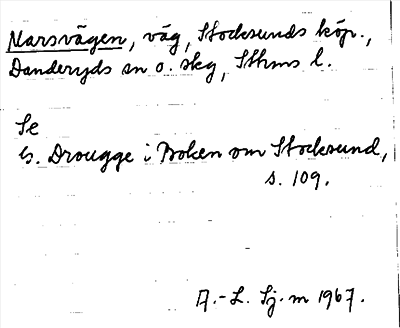 Narsvägen, väg, Stocksunds köp.,
Danderyds sn o. skg, Sthms l.
Se
G. Drougge i Boken om Stocksund,
s. 109.
A.-L. Sj.-m 1967.